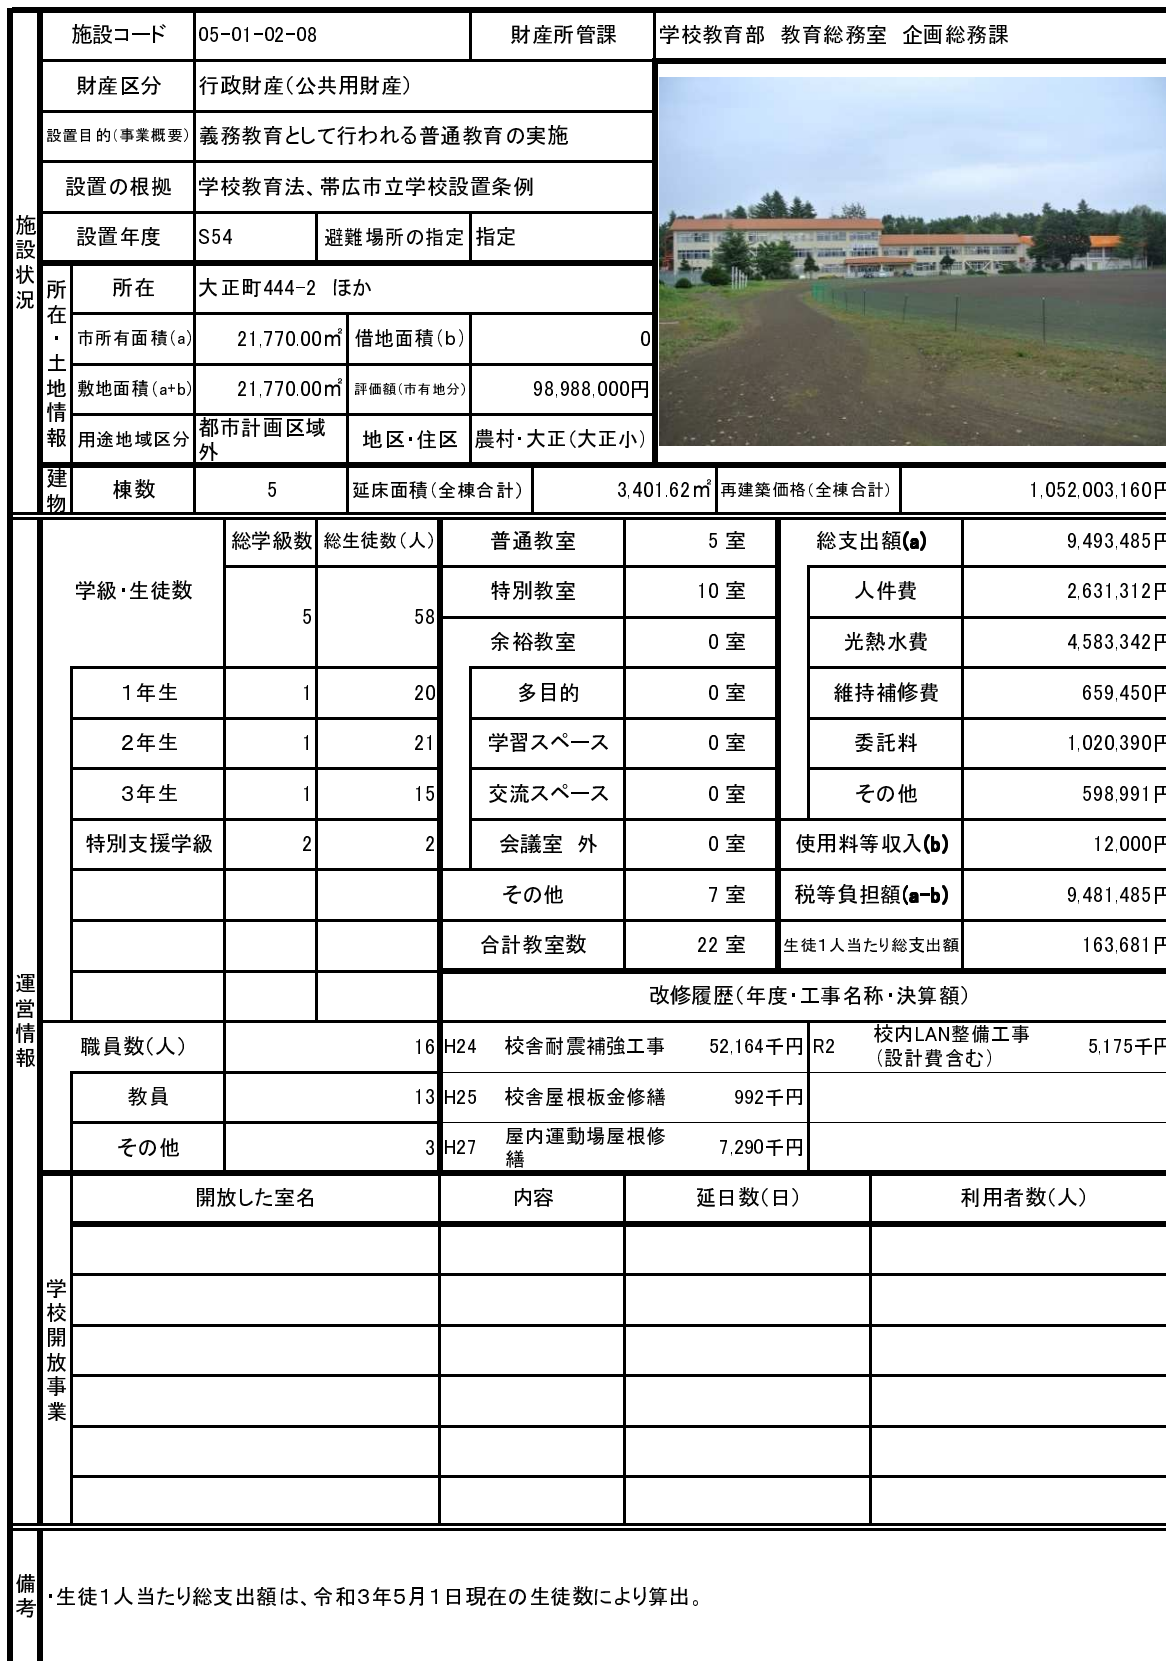 施設状況
施設コード 05-01-02-08 財産所管課 学校教育部 教育総務室 企画総務課
財産区分 行政財産(公共用財産)
設置目的(事業概要) 義務教育として行われる普通教育の実施
設置の根拠 学校教育法、帯広市立学校設置条例
設置年度 S54 避難場所の指定 指定
所在・土地情報
所在 大正町444-2 ほか
市所有面積(a) 21,770.00㎡ 借地面積(b) 0
敷地面積(a+b) 21,770.00㎡ 評価額(市有地分) 98,988,000円
用途地域区分 都市計画区域
外
地区・住区 農村・大正(大正小)
建物
棟数 5 延床面積(全棟合計) 3,401.62㎡ 再建築価格(全棟合計) 1,052,003,160円
運営情報
学級・生徒数 総学級数 総生徒数(人)
5 58
1年生 1 20
2年生 1 21
3年生 1 15
特別支援学級 2 2
普通教室 5 室
特別教室 10 室
余裕教室 0 室
多目的 0 室
学習スペース 0 室
交流スペース 0 室
会議室 外 0 室
その他 7 室
合計教室数 22 室
総支出額(a) 9,493,485円
人件費 2,631,312円
光熱水費 4,583,342円
維持補修費 659,450円
委託料 1,020,390円
その他 598,991円
使用料等収入(b) 12,000円
税等負担額(a-b) 9,481,485円
生徒1人当たり総支出額 163,681円
職員数(人) 16
教員 13
その他 3
改修履歴(年度・工事名称・決算額)
H24 校舎耐震補強工事 52,164千円
R2 校内LAN整備工事
(設計費含む) 5,175千円
H25 校舎屋根板金修繕 992千円
H27 屋内運動場屋根修
繕 7,290千円
学校開放事業
開放した室名 内容 延日数(日) 利用者数(人)
備考
・生徒1人当たり総支出額は、令和3年5月1日現在の生徒数により算出。